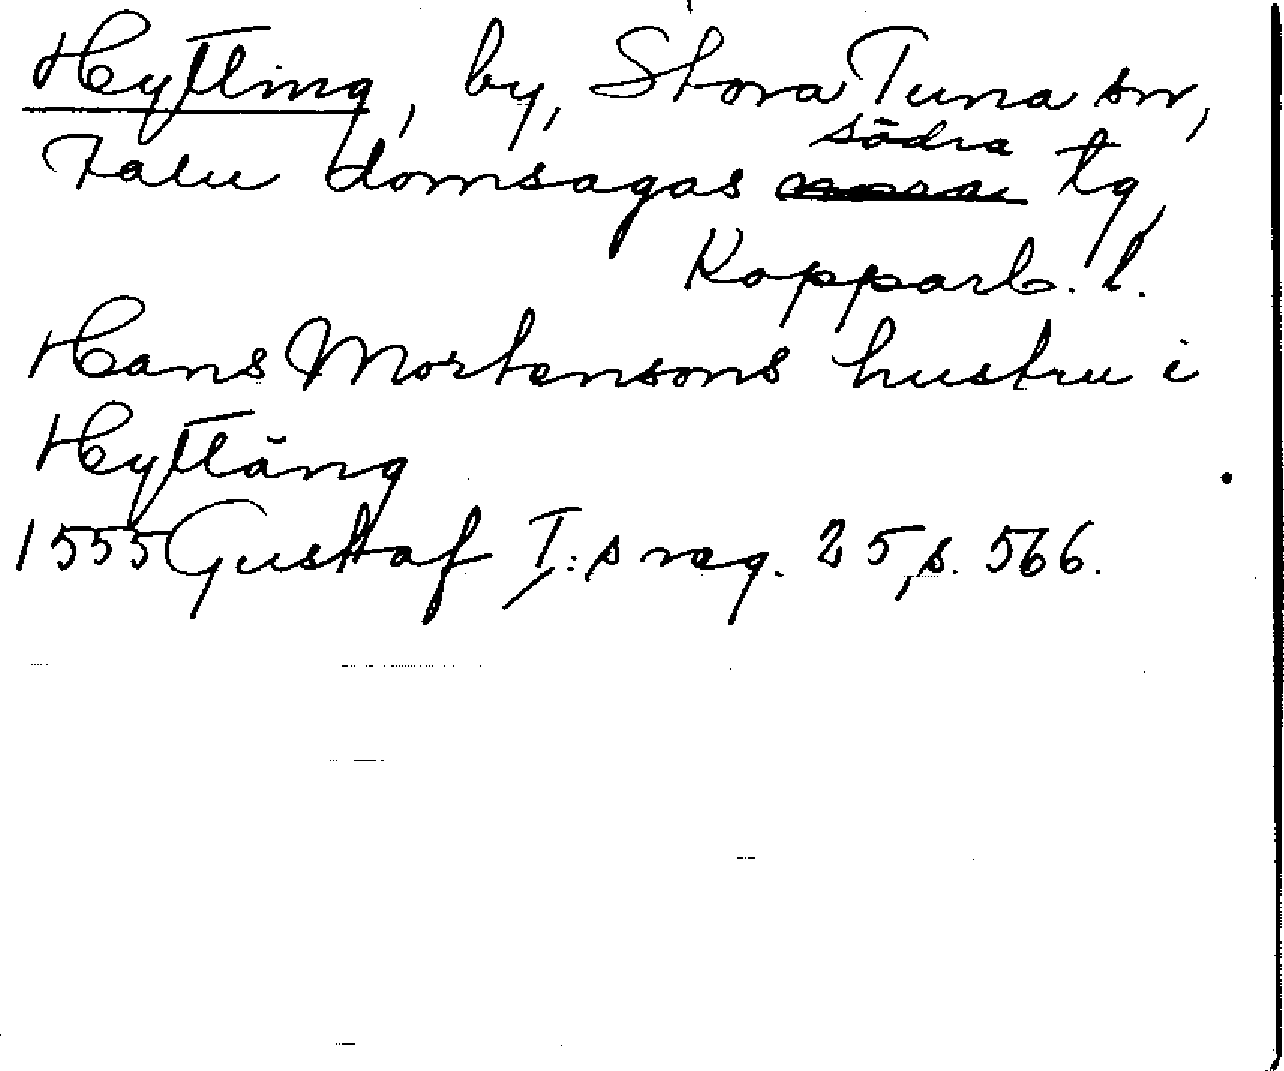 Hytting, by, Stora Tuna sn,
Falu domsagas södra tg,
Kopparb. l.
Hans Mortensons hustru i
Hyttäng
1555 Gustaf I:s reg. 25, s. 566.